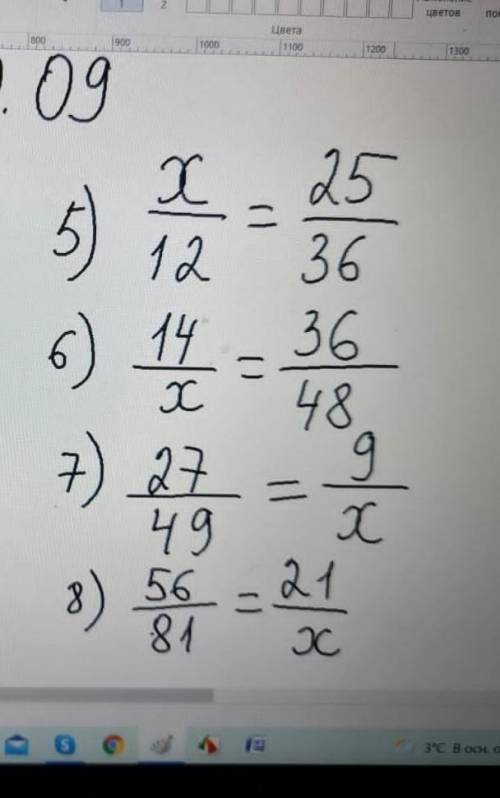 1 2 цветов
Цвета
800 900 1000 1100 1200 1300
. 09
5) x/12 = 25/36
6) 14/x = 36/48
7) 27/49 = 9/x
8) 56/81 = 21/x
3°C В осн.